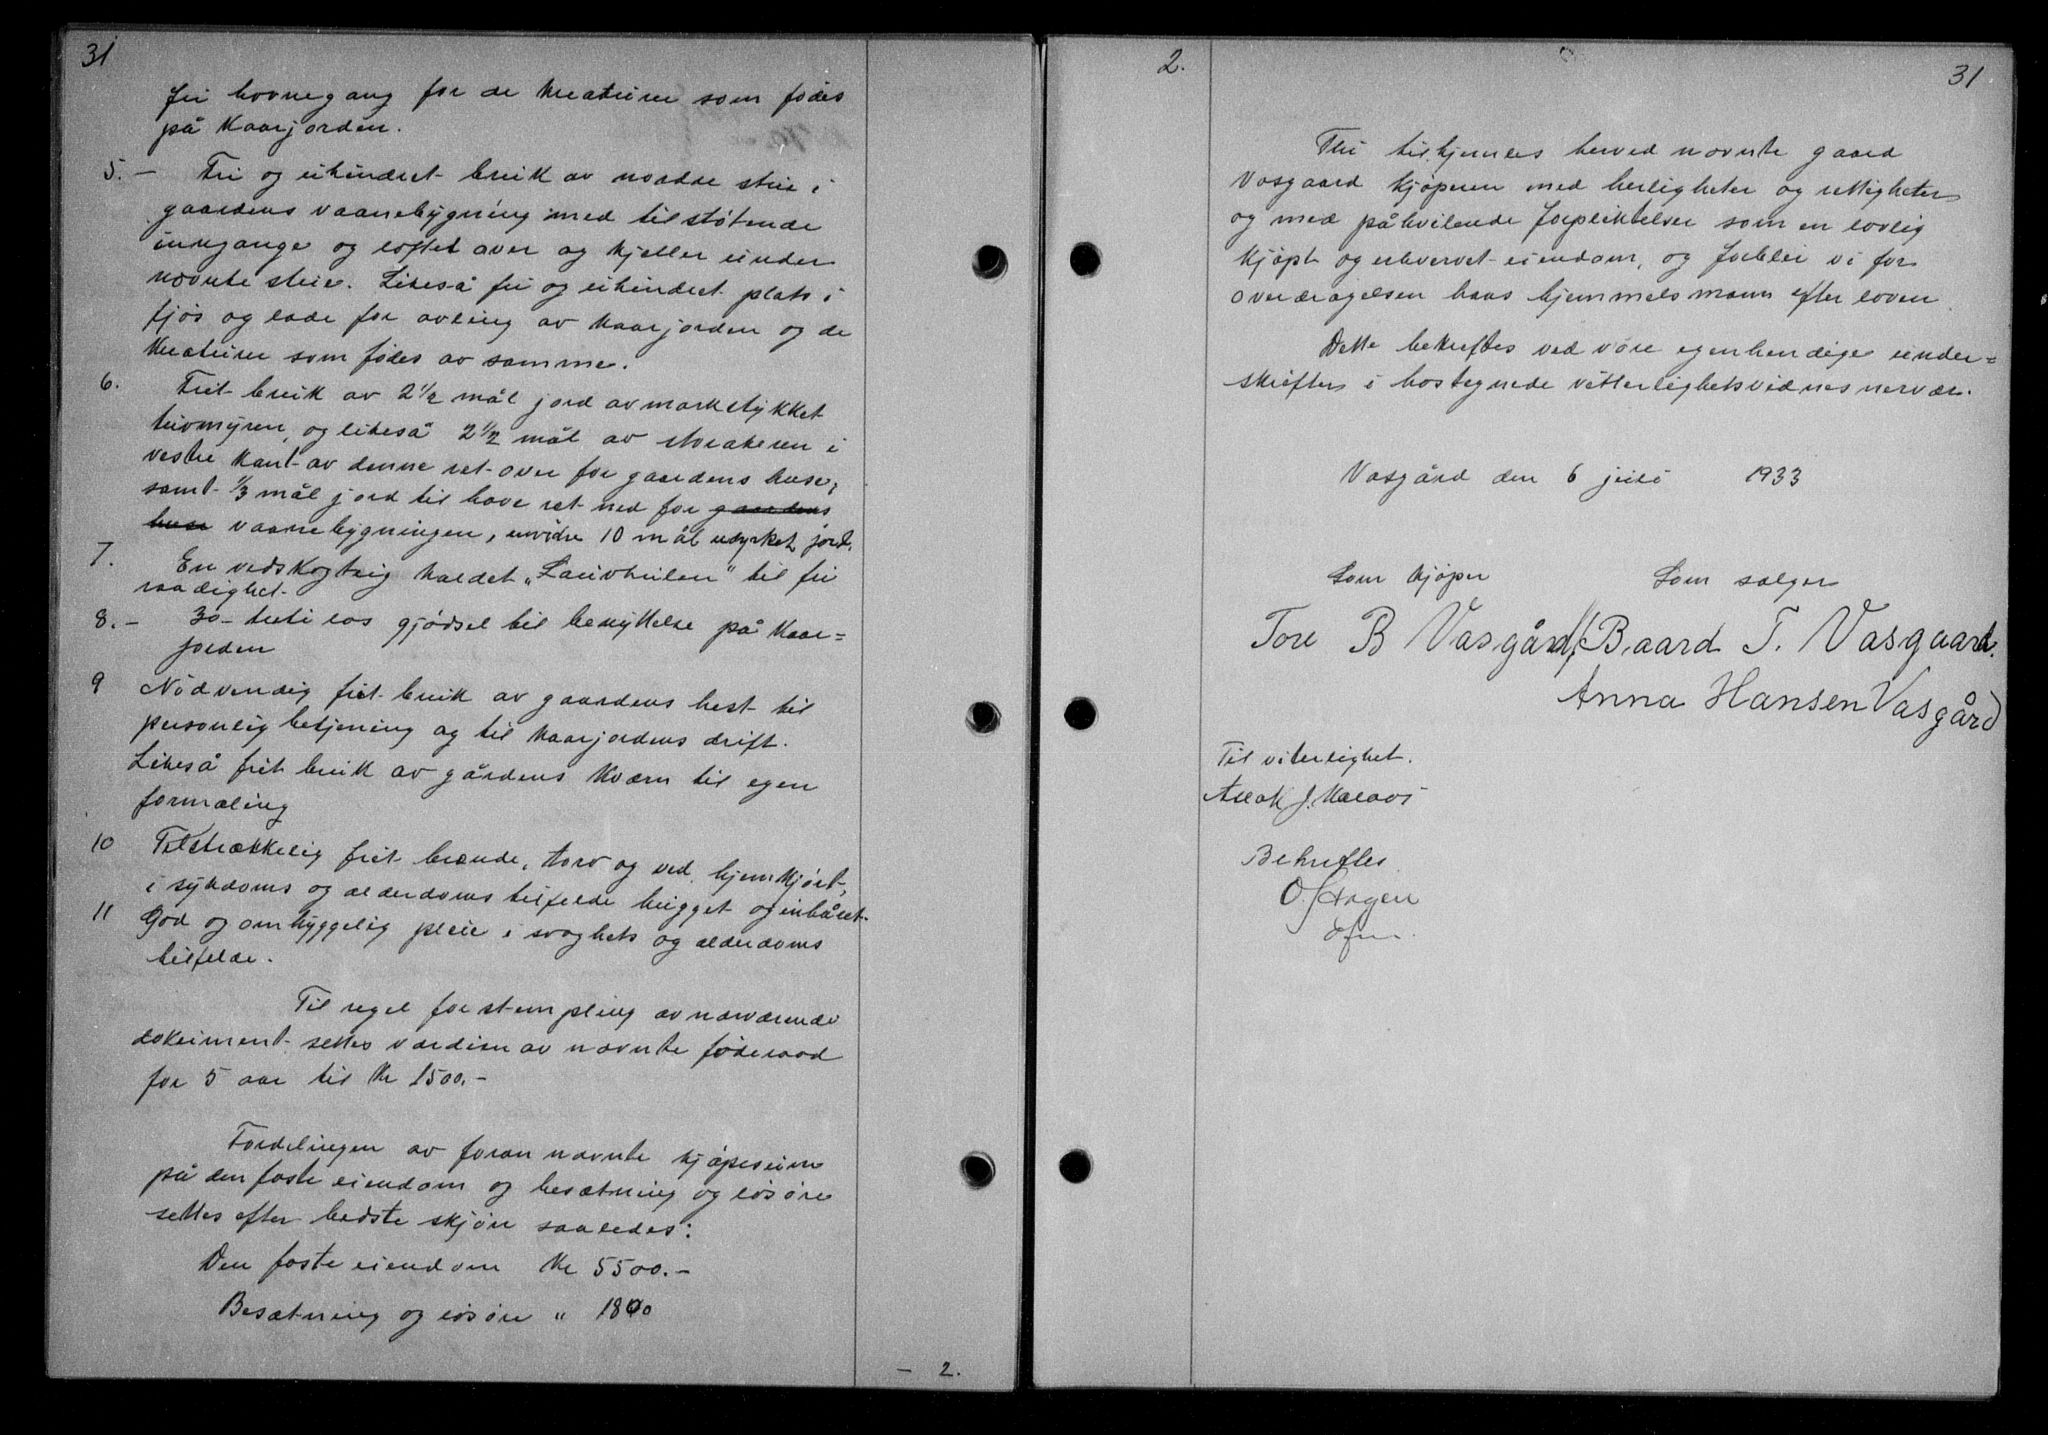 31
fri havnegang for de kreaturer som fødes
på kaarjorden.
5. - Fri og uhindret bruk av nordre stue i
gaardens vaanebygning med tilstøtende
inngange og loftet over og kjeller under
nævnte stue. Likeså fri og uhindret plats i
fjøs og lade for avling av kaarjorden og de
kreaturer som fødes av samme.
6. Frit bruk av 2 1/2 mål jord av markstykket
muren, og likeså 2 1/2 mål av storakeren i
vestre kant av denne ret over for gaardens huse,
samt 1/3 mål jord til have ret ned for gaardens
huse vaanebygningen, uvidre 10 mål udyrket jord.
7. En vedskogteig kaldet "Lauvhulen" til fri
raadighet
8. - 30 - treti las gjødsel til benyttelse på kaar=
jorden
9 Nødvendig frit bruk av gaardens hest til
personlig betjening og til kaarjordens drift.
Likeså frit bruk av gårdens kværn til egen
formaling
10 Tilstrækkelig frit brænde, torv og ved, hjemkjørt,
i sykdoms og alderdoms tilfelde hugget og inbåret
11 God og omhyggelig pleie i svaghets og alderdoms
tilfelde.
Til regel for stempling av nærværende
dokument settes værdien av nævnte føderaad
for 5 aar til Kr 1500.-
Fordelingen av foran nævnte kjøpesum
på den faste eiendom og besætning og løsøre
settes efter bedste skjøn saaledes:
Den faste eiendom Kr 5500.-
Besætning og løsøre " 1800
- 2.
2.
31
Thi tilhjemles herved nævnte gaard
Vasgaard kjøperen med herligheter og rettigheter
og med påhvilende forpliktelser som en lovlig
kjøpt og erhvervet eiendom, og forblir vi for
overdragelsen hans hjemmelsmann efter loven
Dette bekreftes ved våre egenhendige under=
skrifter i hostegnede vitterlighetsvidnes nervær.
Vasgård den 6 juli 1933
Som kjøper Som sælger
Tore B Vasgård Baard T. Vasgaard.
Anna Hansen Vasgård
Til viterlighet.
Aslak J.
Bekreftes
O.